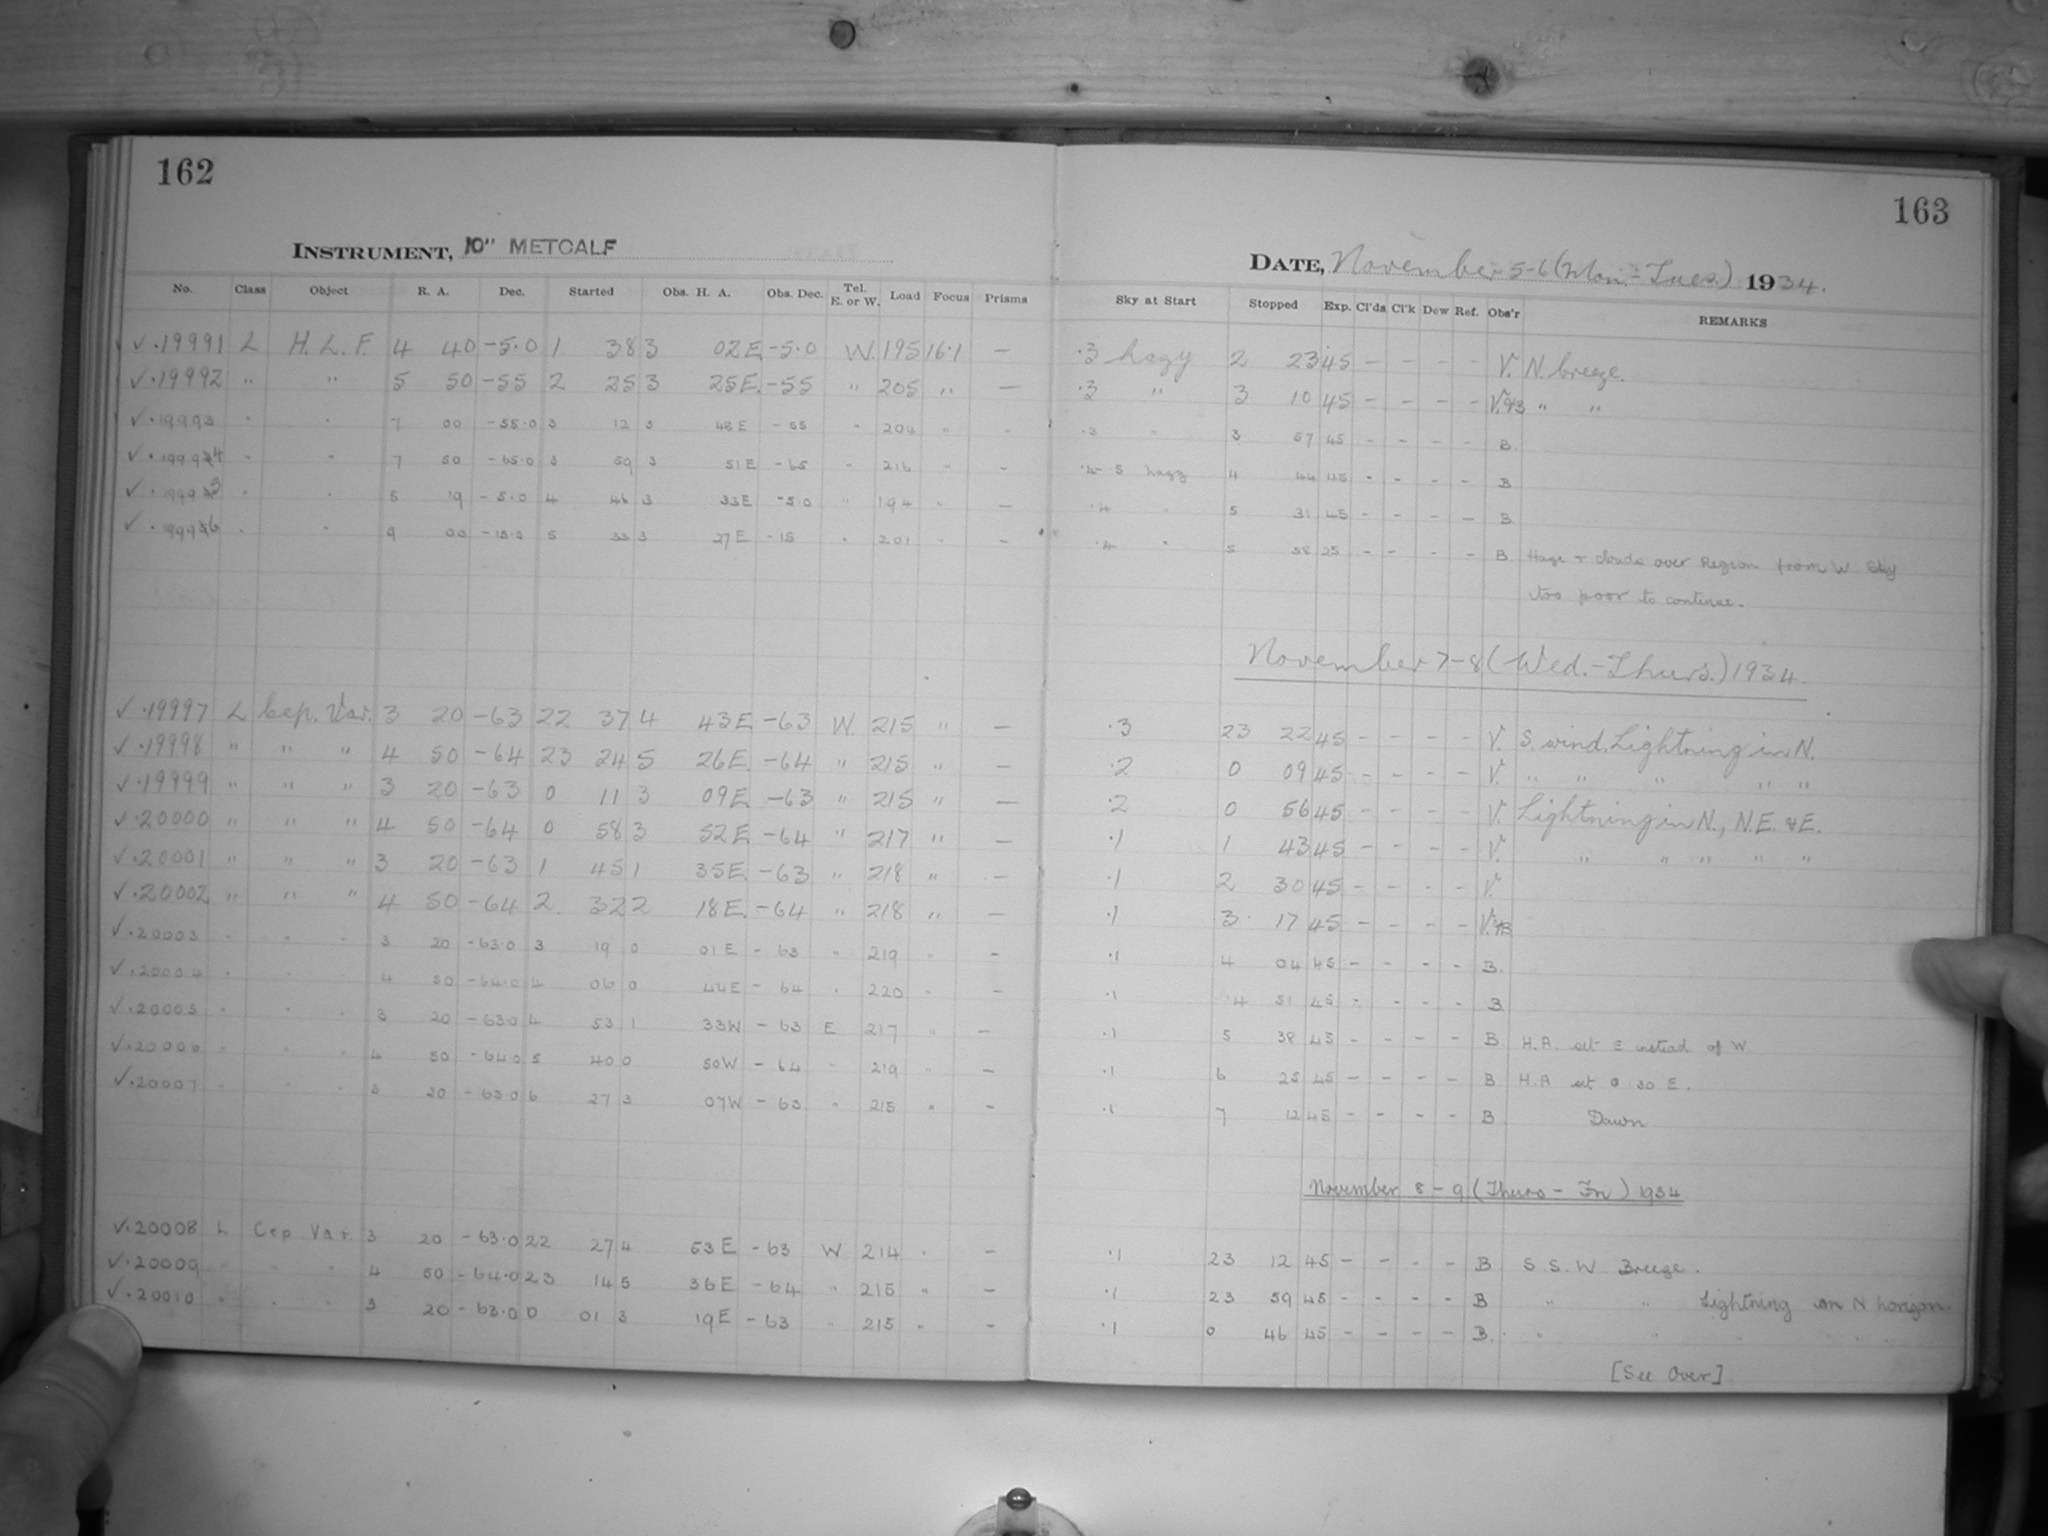 162
INSTRUMENT, 10" METCALF
No. Class Object R. A. Dec. Started Obs. H. A. Obs. Dec. Tel. E. or W. Load Focus Prisms
✓·19991 L H.L.F. 4 40 -5·0 1 38 3 02E -5·0 W. 195 16·1 —
✓·19992 " " 5 50 -55 2 25 3 25E. -55 " 205 " —
✓·19993 " " 7 00 -55·0 3 12 3 48E -55 " 204 " -
✓·19994 " " 7 50 -65·0 3 59 3 51E -65 " 216 " -
✓·19995 " " 5 19 -5·0 4 46 3 33E -5·0 " 194 " —
✓·19996 " " 9 00 -15·0 5 33 3 27E -15 " 201 " -
✓·19997 L Cep. Var. 3 20 -63 22 37 4 43E -63 W. 215 " —
✓·19998 " " " 4 50 -64 23 24 5 26E. -64 " 215 " —
✓·19999 " " " 3 20 -63 0 11 3 09E -63 " 215 " —
✓·20000 " " " 4 50 -64 0 58 3 52E -64 " 217 " —
✓·20001 " " " 3 20 -63 1 45 1 35E -63 " 218 " —
✓·20002 " " " 4 50 -64 2 32 2 18E. -64 " 218 " —
✓·20003 " " " 3 20 -63·0 3 19 0 01E -63 " 219 " -
✓·20004 " " " 4 50 -64·0 4 06 0 44E -64 " 220 " -
✓·20005 " " " 3 20 -63·0 4 53 1 33W -63 E 217 " -
✓·20006 " " " 4 50 -64·0 5 40 0 50W -64 " 219 " -
✓·20007 " " " 3 20 -63·0 6 27 3 07W -63 " 215 " -
✓·20008 L Cep Var. 3 20 -63·0 22 27 4 53E -63 W 214 " -
✓·20009 " " " 4 50 -64·0 23 14 5 36E -64 " 215 " -
✓·20010 " " " 3 20 -63·0 0 01 3 19E -63 " 215 " -
163
DATE, November 5-6 (Mon.-Tues.) 1934.
Sky at Start Stopped Exp. Cl'ds Cl'k Dew Ref. Obs'r REMARKS
·3 hazy 2 23 45 - - - - V. N. breeze.
·3 " 3 10 45 - - - - V.+B " "
·3 " 3 57 45 - - - - B.
S hazy 4 44 45 - - - - B
·4 " 5 31 45 - - - - B
·4 " 5 58 25 - - - B. Haze + clouds over Region from W Sky
too poor to continue.
November 7-8 (Wed.-Thurs.) 1934.
·3 23 22 45 - - - - V. S. wind, Lightning in N.
·2 0 09 45 - - - - V. " " " " "
·2 0 56 45 - - - - V. Lightning in N., N.E. & E.
·1 1 43 45 - - - - V. " " " " "
·1 2 30 45 - - - - V.
·1 3 17 45 - - - - V.+B
·1 4 04 45 - - - - B.
·1 4 51 45 - - - - B
·1 5 38 45 - - - - B H.A. set E instead of W.
·1 6 25 45 - - - - B H.A set 0 30 E.
·1 7 12 45 - - - - B Dawn
November 8-9 (Thurs - Fri) 1934
·1 23 12 45 - - - - B S S.W Breeze.
·1 23 59 45 - - - - B " " Lightning on N horizon.
·1 0 46 45 - - - - B. " " " " "
[See Over]